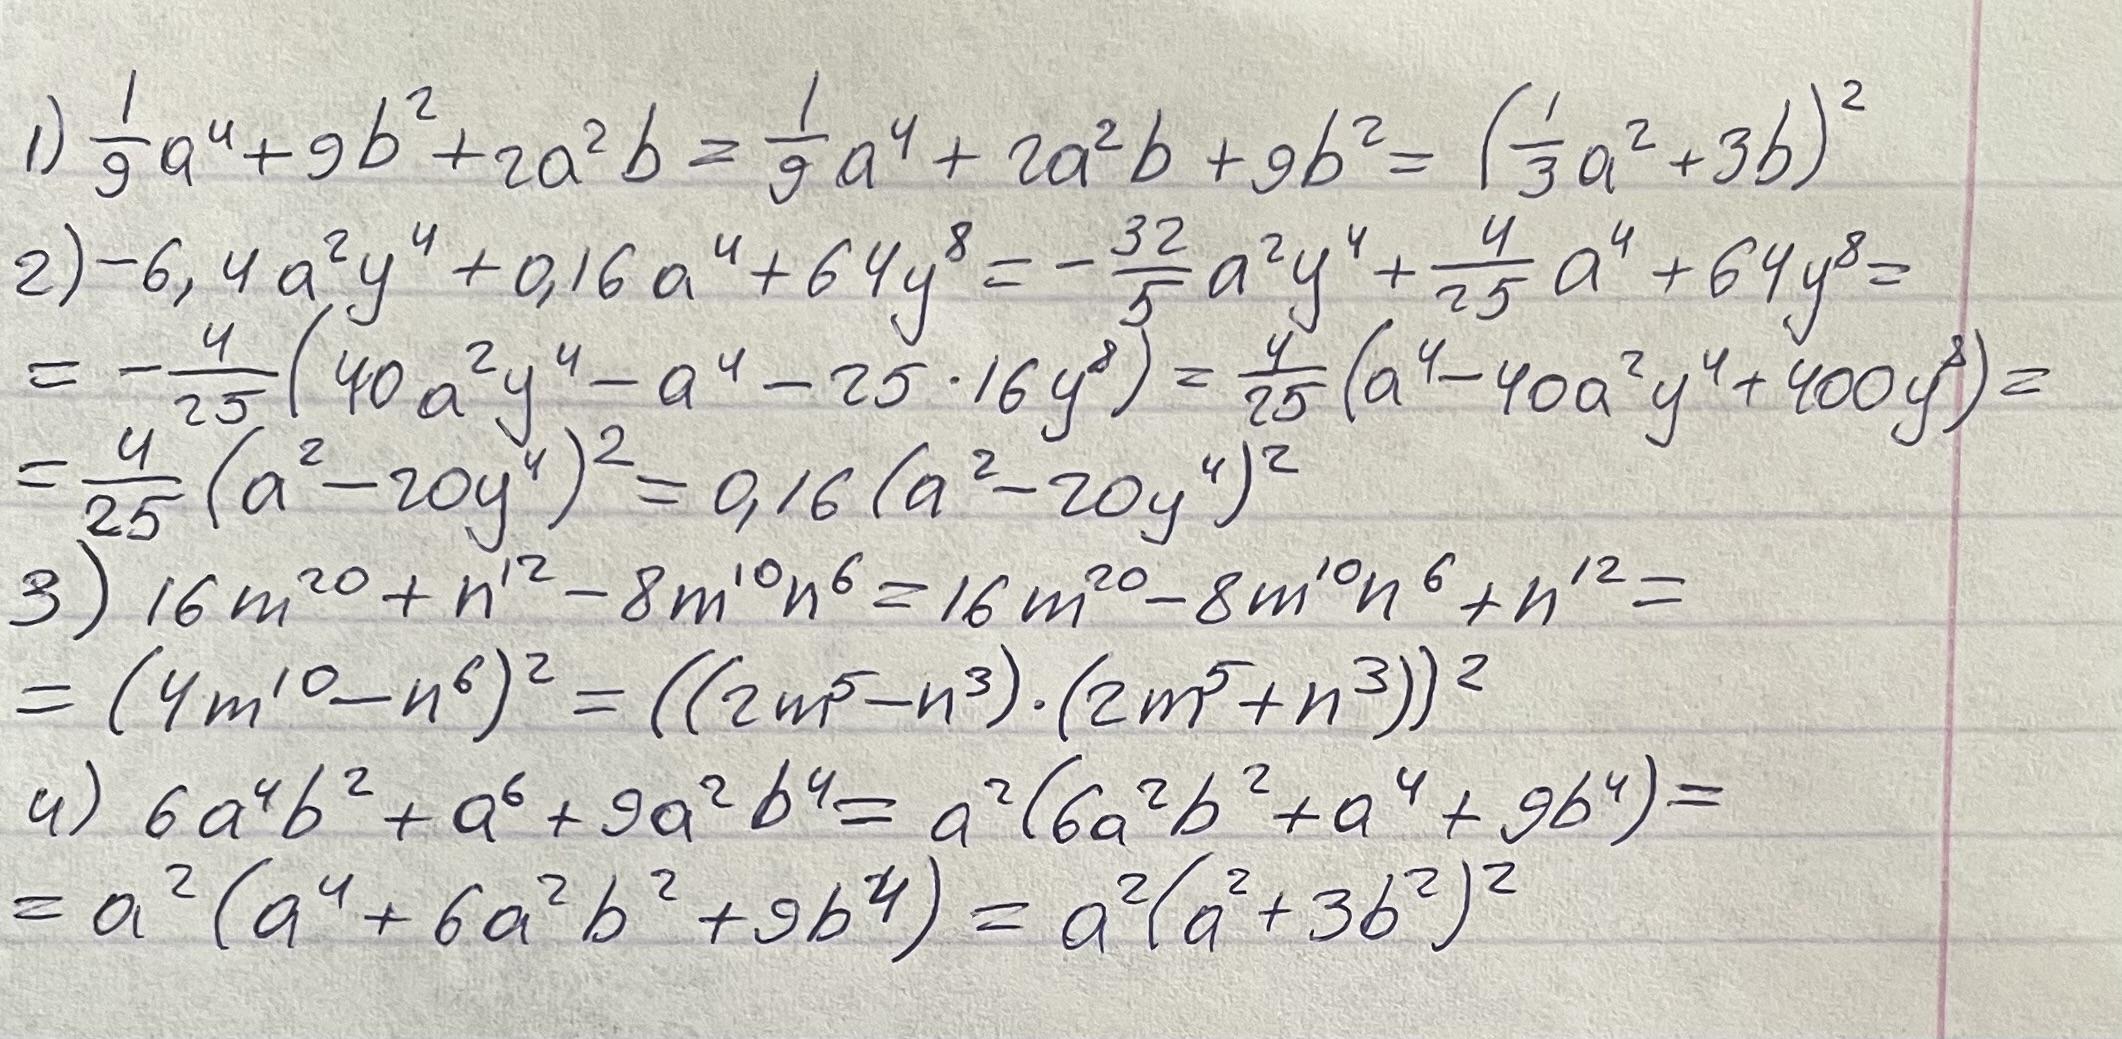 1) 1/9 a⁴ + 9b² + 2a²b = 1/9 a⁴ + 2a²b + 9b² = (1/3 a² + 3b)²
2) -6,4a²y⁴ + 0,16a⁴ + 64y⁸ = - 32/5 a²y⁴ + 4/25 a⁴ + 64y⁸ =
= - 4/25 (40a²y⁴ - a⁴ - 25 · 16y⁸) = 4/25 (a⁴ - 40a²y⁴ + 400y⁸) =
= 4/25 (a² - 20y⁴)² = 0,16 (a² - 20y⁴)²
3) 16m²⁰ + n¹² - 8m¹⁰n⁶ = 16m²⁰ - 8m¹⁰n⁶ + n¹² =
= (4m¹⁰ - n⁶)² = ((2m⁵ - n³) · (2m⁵ + n³))²
4) 6a⁴b² + a⁶ + 9a²b⁴ = a² (6a²b² + a⁴ + 9b⁴) =
= a² (a⁴ + 6a²b² + 9b⁴) = a² (a² + 3b²)²